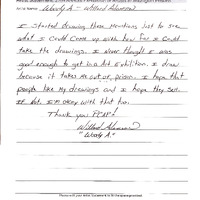 Woody A. - Willard Adamson
I started drawing these creations just to see
what I could come up with how far I could
take the drawings. I never thought I was
good enough to get in a Art Exhibition. I draw
because it takes me out of prison. I hope that
people like my drawings and I hope they sell.
If not. I'm okay with that too.
Thank you PCAP!
"Woody A."